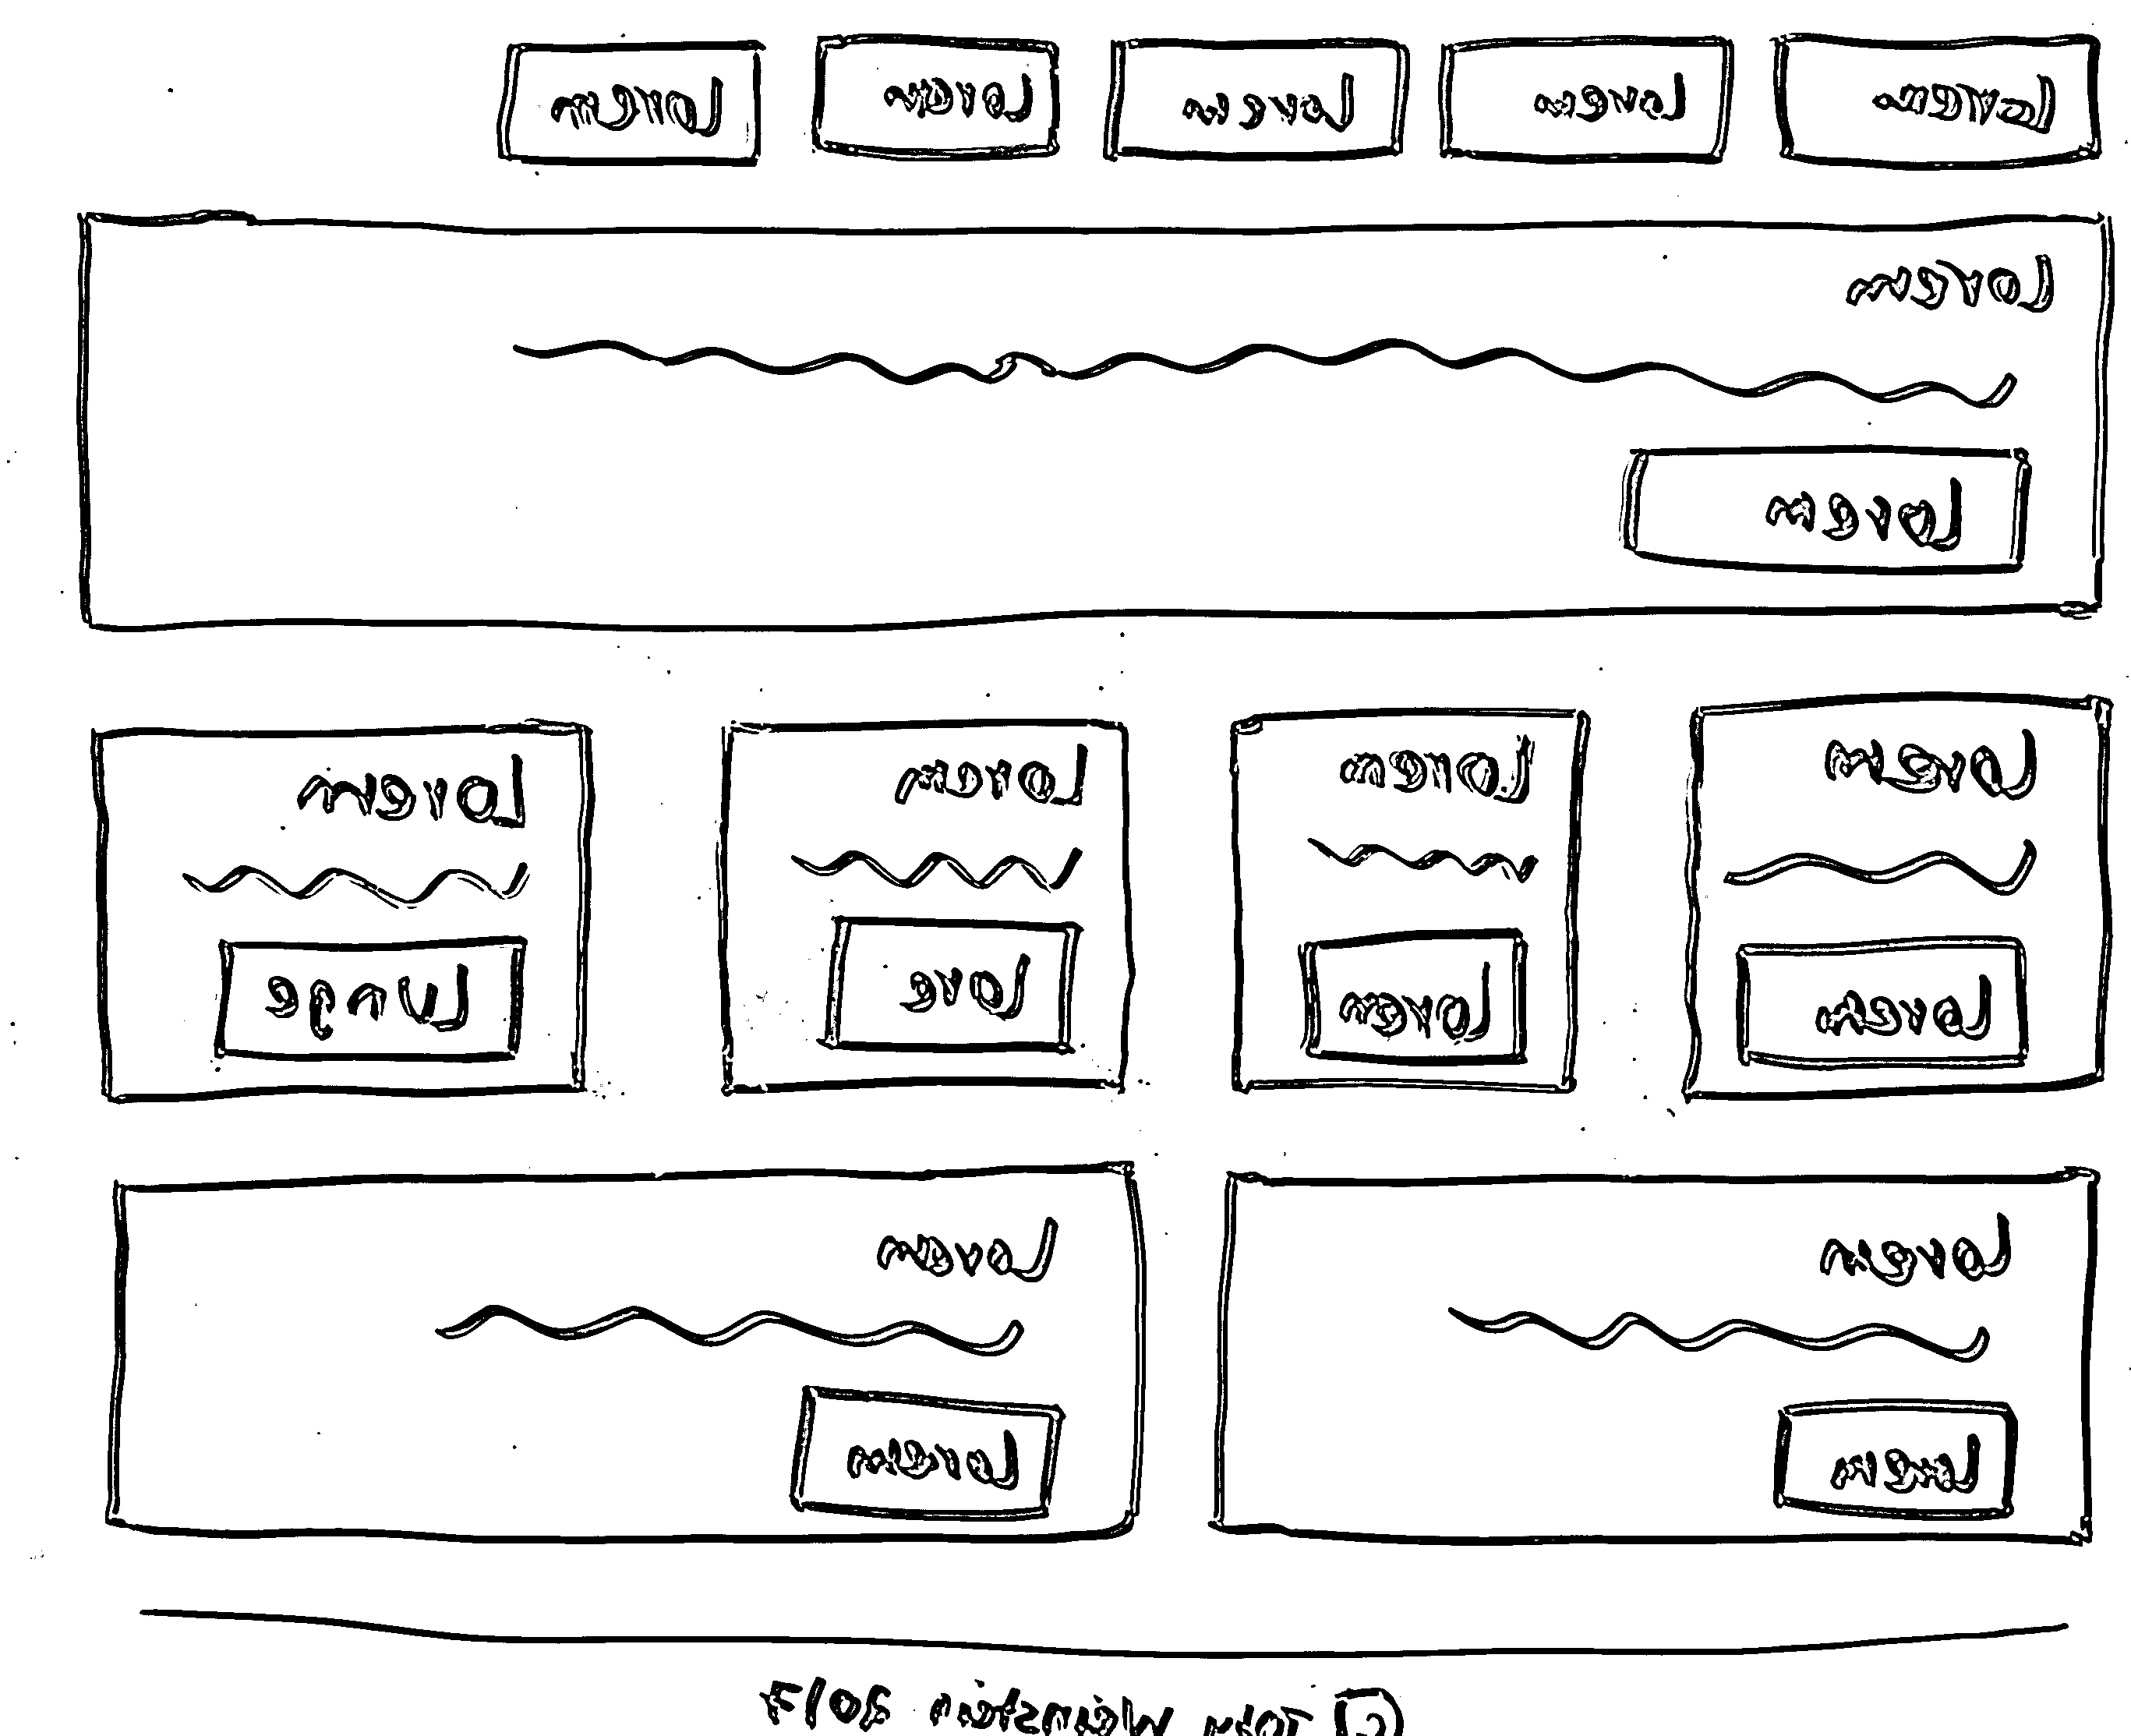 Lorem Lorem Lorem Lorem Lorem
Lorem
Lorem
Lorem Lorem Lorem Lorem
Lorem Lorem Lore Lunge
Lorem Lorem
Lorem Lorem
© Weinstein 2017